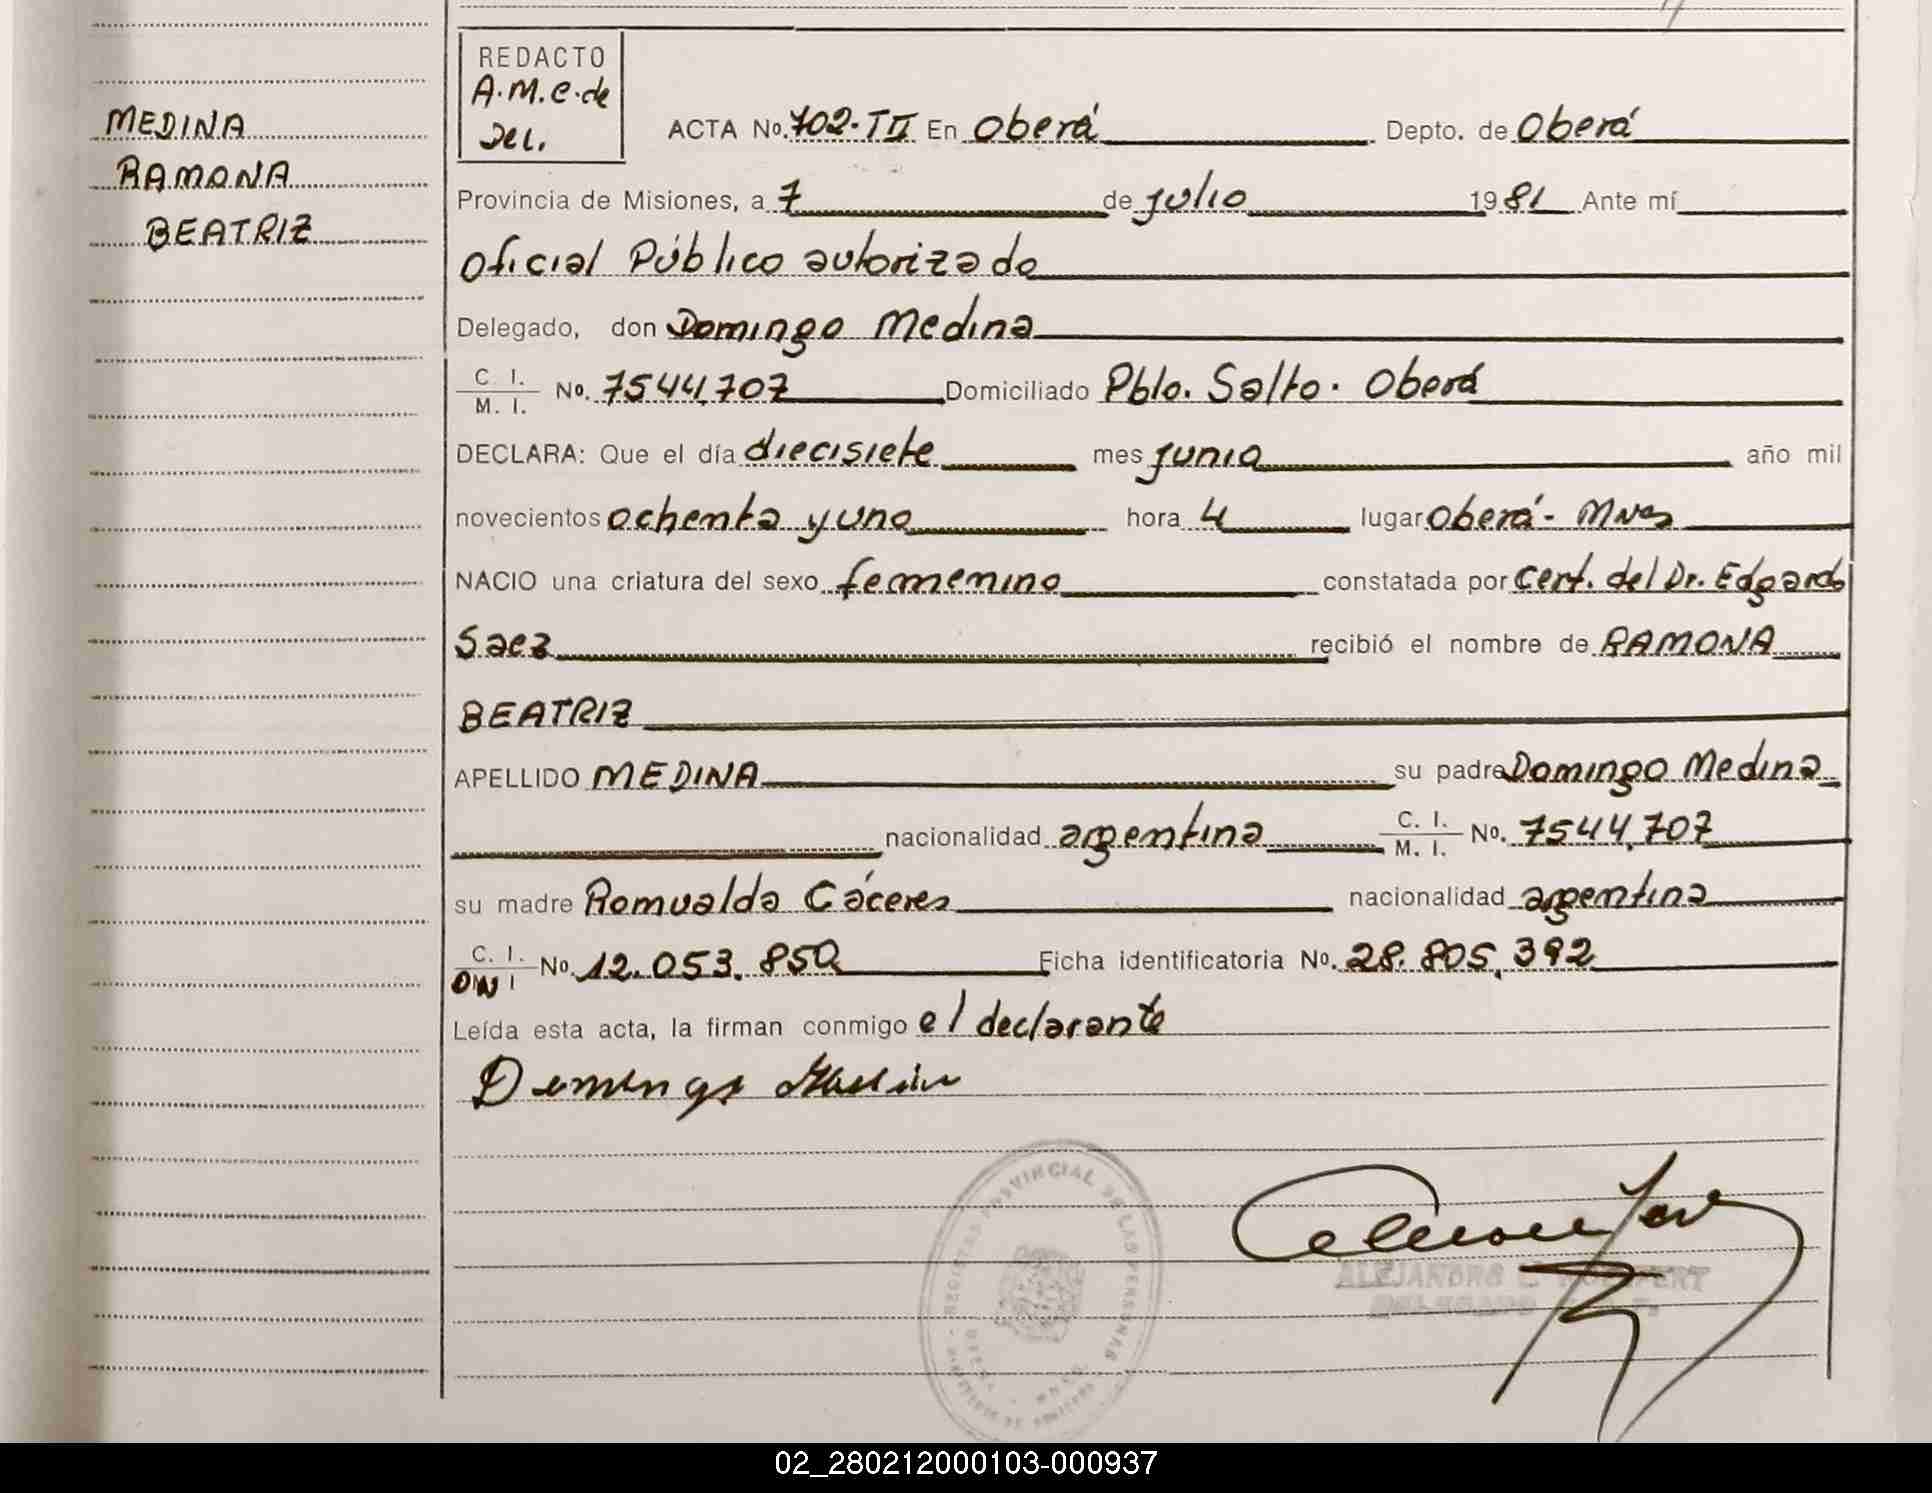 MEDINA
RAMONA
BEATRIZ
REDACTO
A.M.C. de
Del.
ACTA No. 702-TII En Oberá Depto. de Oberá
Provincia de Misiones, a 7 de julio 1981 Ante mí
Oficial Público autorizado
Delegado, don Domingo Medina
C. I.
M. I. No. 7544.707 Domiciliado Pblo. Salto. Oberá
DECLARA: Que el día diecisiete mes junio año mil
novecientos ochenta y uno hora 4 lugar Oberá - Mnes
NACIO una criatura del sexo femenino constatada por Cert. del Dr. Edgardo
Saez recibió el nombre de RAMONA
BEATRIZ
APELLIDO MEDINA su padre Domingo Medina
nacionalidad argentina C. I.
M. I. No. 7544.707
su madre Romualda Cáceres nacionalidad argentina
C. I.
DNI No. 12.053.850 Ficha identificatoria No. 28.805.392
Leída esta acta, la firman conmigo el declarante
Domingo Medina
REGISTRO PROVINCIAL DE LAS PERSONAS
OBERA MNES.
ALEJANDRO
DELEGADO
02_280212000103-000937